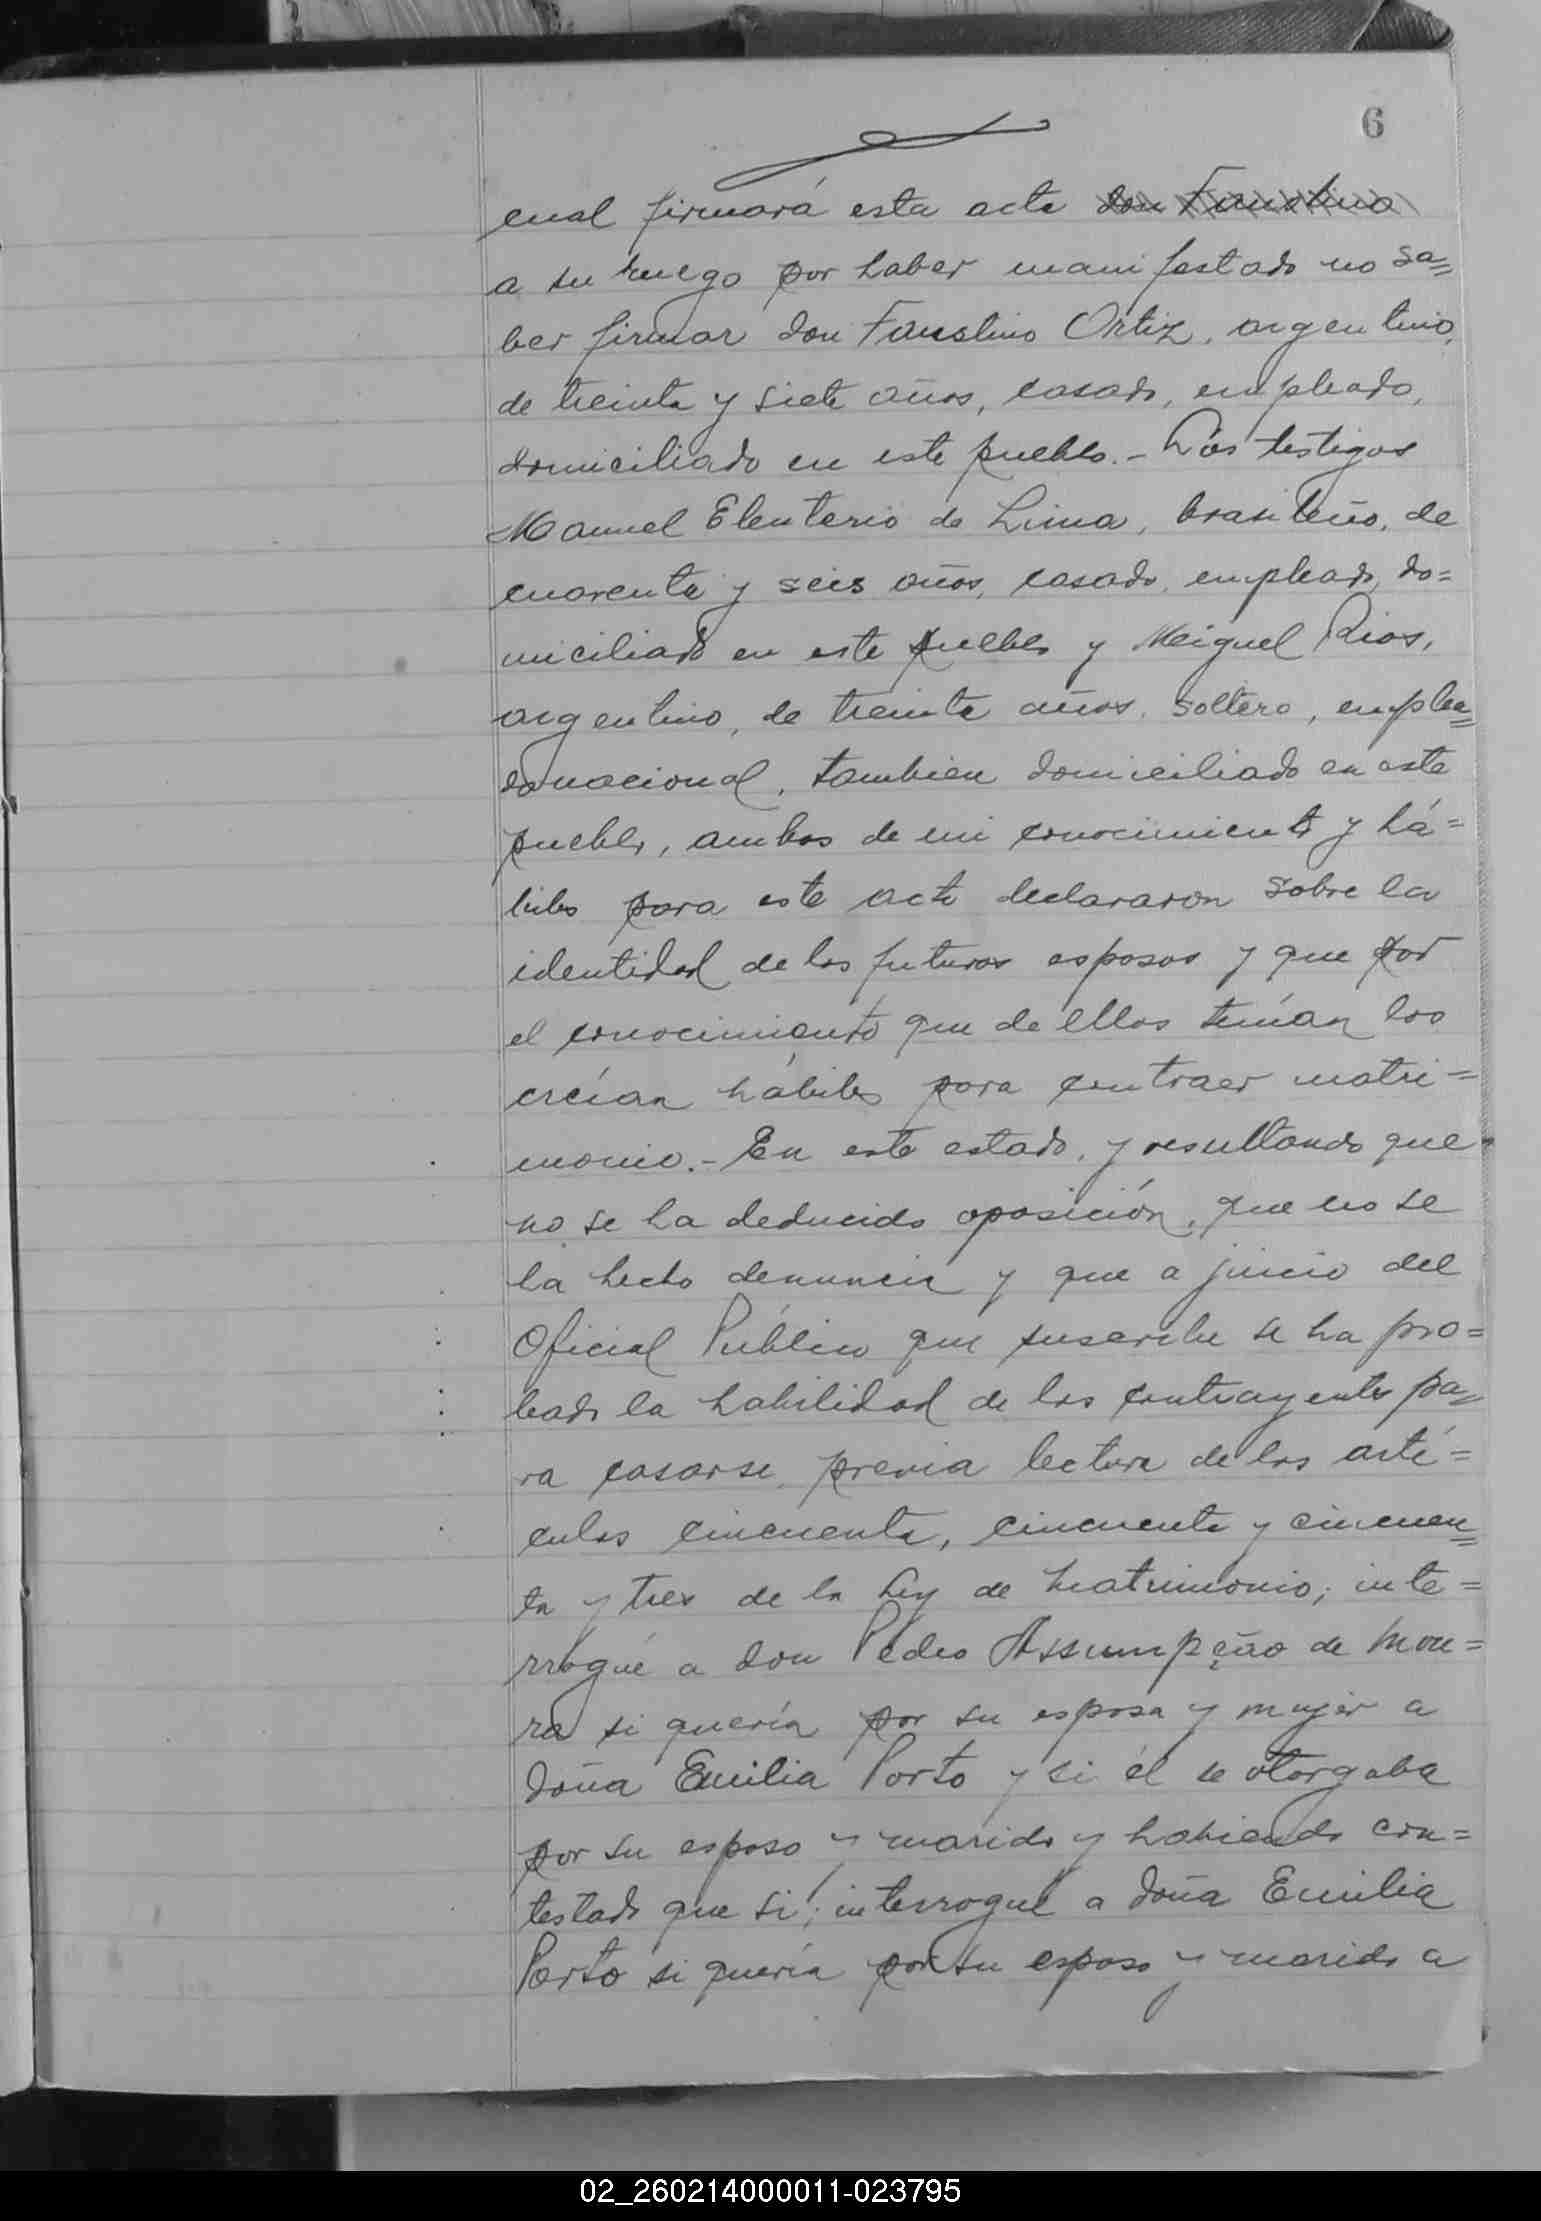 6
cual firmará esta acta don Faustino
a su ruego por haber manifestado no sa=
ber firmar don Faustino Ortiz, argentino,
de treinta y siete años, casado, empleado,
domiciliado en este pueblo.- Los testigos
Manuel Eleuterio de Lima, brasileño, de
cuarenta y seis años, casado, empleado, do=
miciliado en este pueblo y Meiguel Rios,
argentino, de treinta años, soltero, emplea=
do nacional, tambien domiciliado en este
pueblo, ambos de mi conocimiento y há=
biles para este acto declararon sobre la
identidad de los futuros esposos y que por
el conocimiento que de ellos tenían los
creían hábiles para contraer matri=
monio.- En este estado, y resultando que
no se ha deducido oposición, que no se
ha hecho denuncia y que a juicio del
Oficial Público que suscribe se ha pro=
bado la habilidad de los contrayentes pa=
ra casarse, previa lectura de los artí=
culos cincuenta, cincuenta y cincuen=
ta y tres de la Ley de Matrimonio; inte=
rrogué a don Pedro Assumpção de Mou=
ra si quería por su esposa y mujer a
doña Emilia Porto y si él se otorgaba
por su esposo y marido y habiendo con=
testado que si; interrogué a doña Emilia
Porto si quería por su esposo y marido a
02_260214000011-023795